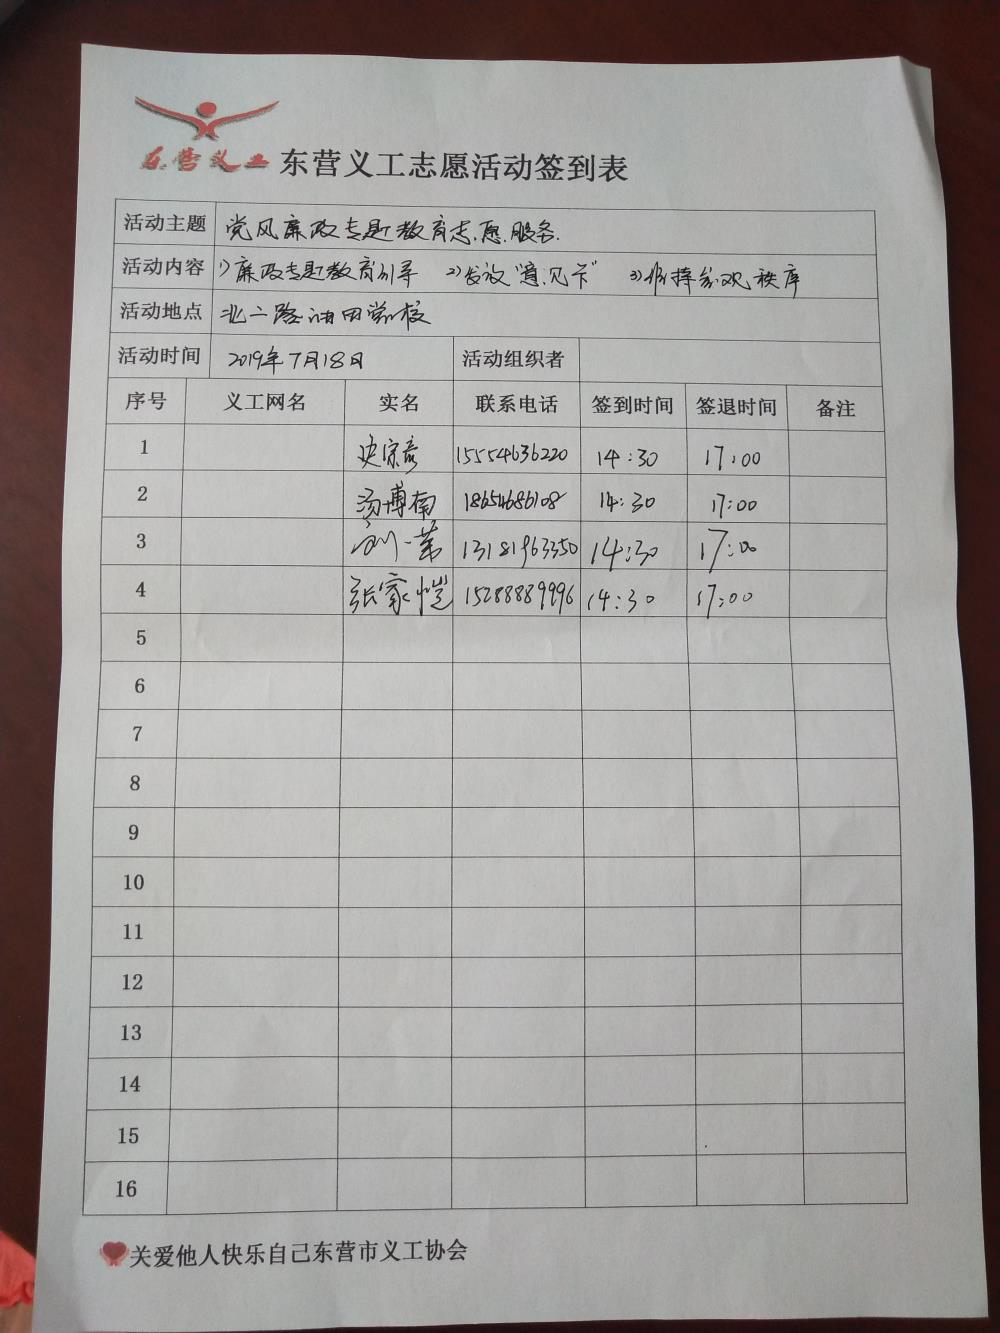 东营义工 东营义工志愿活动签到表
活动主题 党风廉政专题教育志愿服务.
活动内容 1)廉政专题教育引导 2)发放"意见卡" 3)维持参观秩序
活动地点 北二路油田党校
活动时间 2019年7月18日 活动组织者
序号 义工网名 实名 联系电话 签到时间 签退时间 备注
1 史宗彦 15554636220 14:30 17:00
2 汤博南 18654686108 14:30 17:00
3 刘一 13181963350 14:30 17:00
4 张家恺 15288889996 14:30 17:00
5
6
7
8
9
10
11
12
13
14
15
16
关爱他人快乐自己东营市义工协会